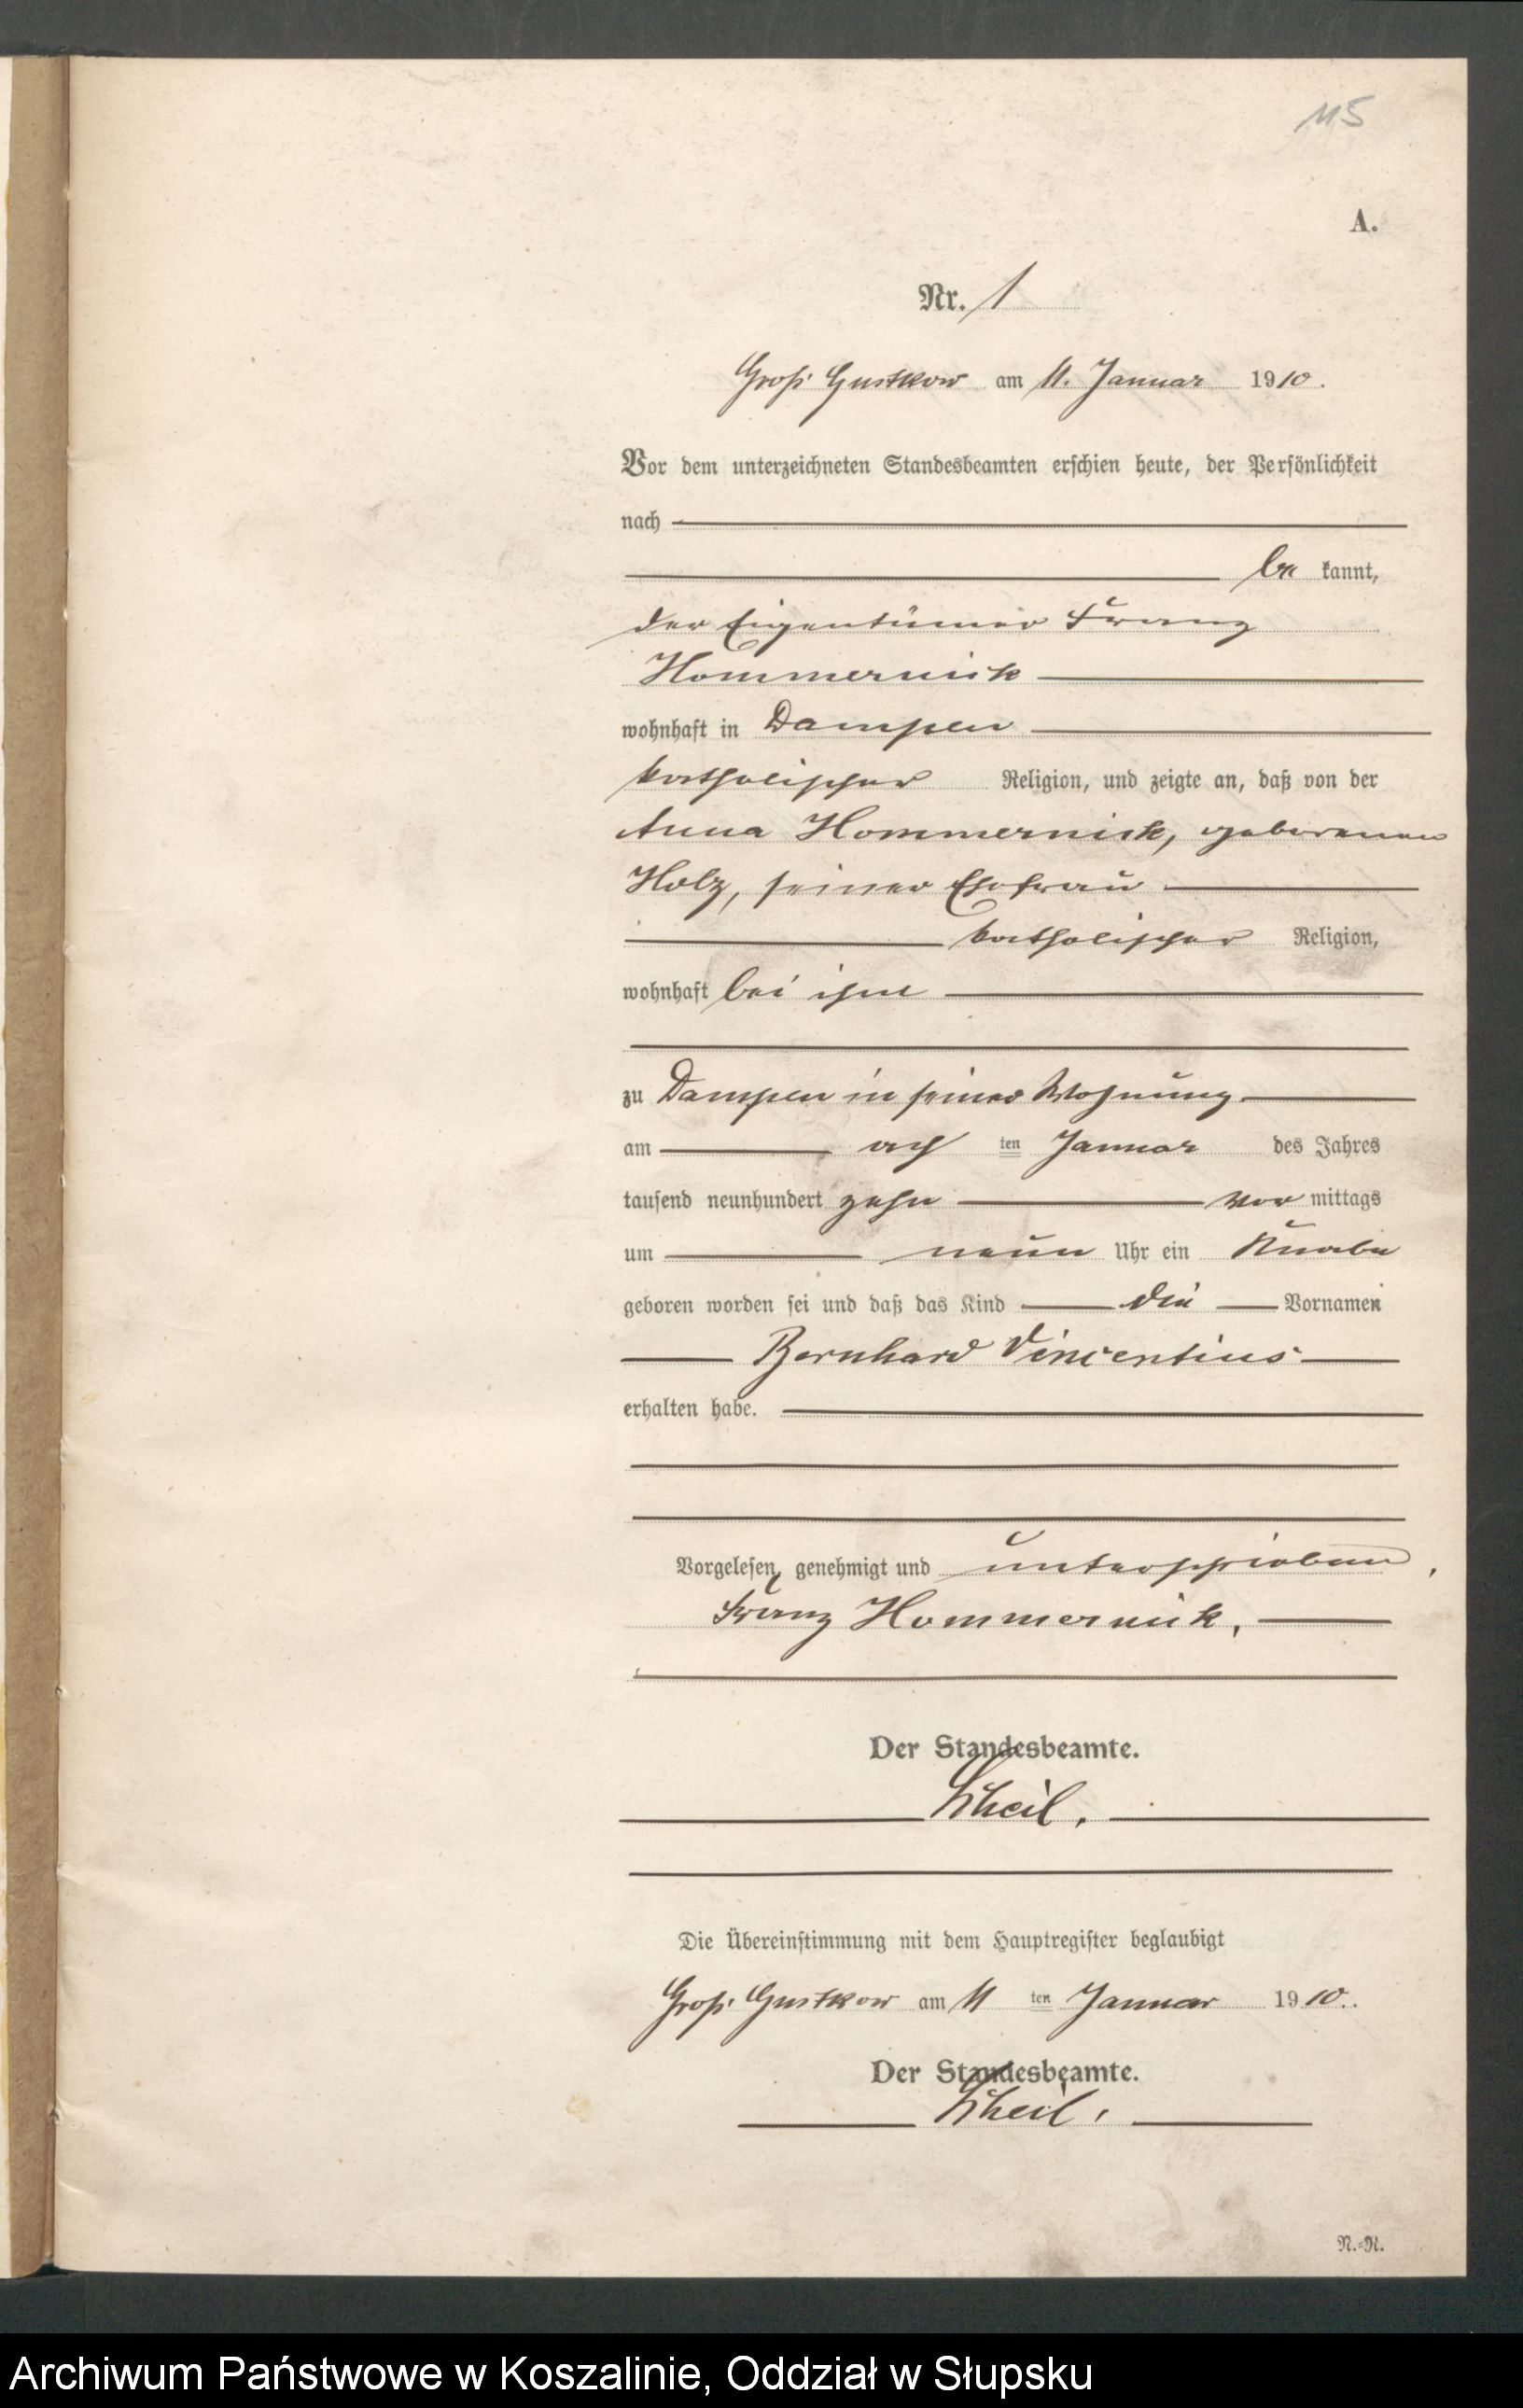 115
A.
Nr. 1
Groß Gustkow am 11. Januar 1910.
Vor dem unterzeichneten Standesbeamten erschien heute, der Persönlichkeit
nach
be kannt,
der Eigentümer Franz
Hommernick
wohnhaft in Dampen
katholischer Religion, und zeigte an, daß von der
Anna Hommernick, geborenen
Holz, seiner Ehefrau
katholischer Religion,
wohnhaft bei ihm
zu Dampen in seiner Wohnung
am ach ten Januar des Jahres
tausend neunhundert zehn vor mittags
um neun Uhr ein Knabe
geboren worden sei und daß das Kind die Vornamen
Bernhard Vincentius
erhalten habe.
Vorgelesen, genehmigt und unterschrieben,
Franz Hommernick.
Der Standesbeamte.
Die Übereinstimmung mit dem Hauptregister beglaubigt
Groß Gustkow am 11 ten Januar 1910.
Der Standesbeamte.
N.=R.
Archiwum Państwowe w Koszalinie, Oddział w Słupsku